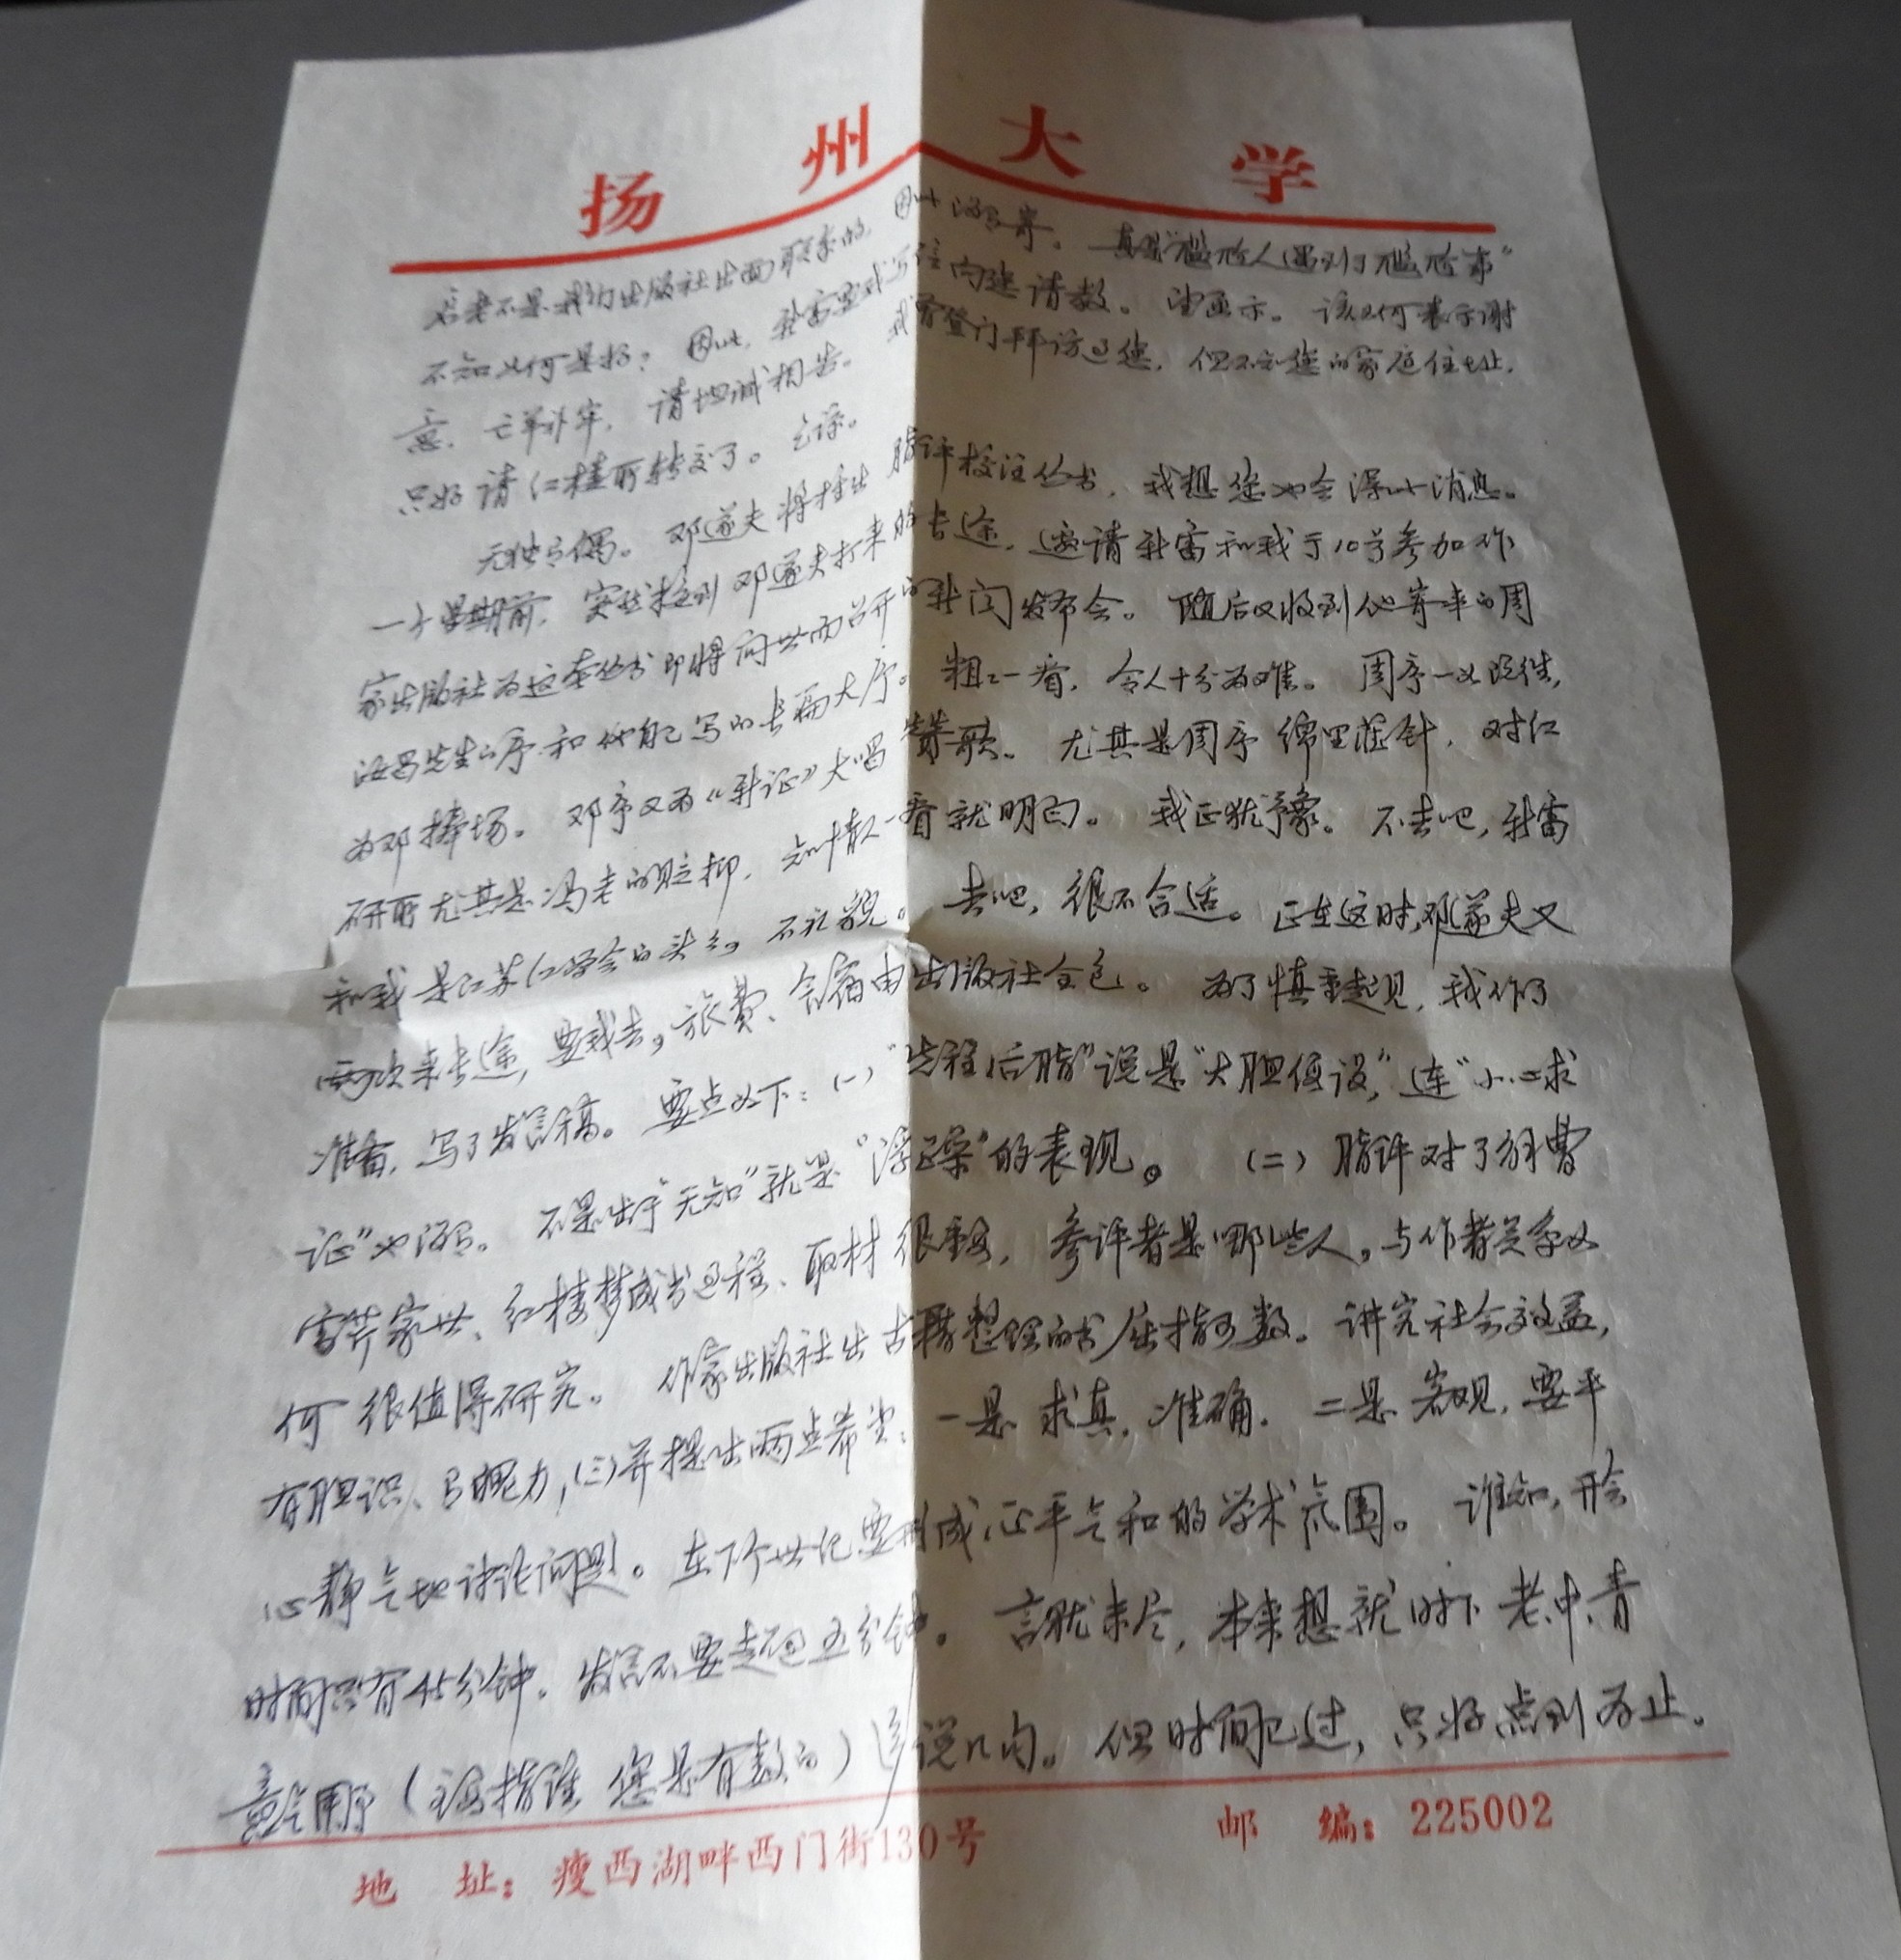 扬州大学
启老不是我们出版社出面联系的,因此没寄。真是"尴尬人遇到了尴尬事"
不知如何是好?因此,新雷要我写信向您请教。望函示。该如何表示谢
意,亡羊补牢,请坦诚相告。我曾登门拜访过您,但不知您的家庭住址,
只好请红楼所转交了。乞谅。
无独有偶。邓遂夫将推出脂评校注丛书,我想您也会得此消息。
一个星期前,突然接到邓遂夫打来的长途,邀请新雷和我于10号参加作
家出版社为这套丛书即将问世而召开的新闻发布会。随后又收到他寄来的周
汝昌先生的序和他自己写的长篇大序。粗粗一看,令人十分为难。周序一如既往,
为邓捧场。邓序又为《新证》大唱赞歌。尤其是周序绵里藏针,对红
研所尤其是冯老的贬抑,知情人一看就明白。我正犹豫。不去吧,新雷
和我是江苏红学会的头头,不礼貌。去吧,很不合适。正在这时,邓遂夫又
两次来长途,要我去,旅费、食宿由出版社全包。为了慎重起见,我作了
准备,写了发言稿。要点如下:(一)"先程后脂"说是"大胆假设",连"小心求
证"也没有。不是出于"无知"就是"浮躁"的表现。(二)脂评对了解曹
雪芹家世、红楼梦成书过程、取材很重要,参评者是哪些人,与作者关系如
何很值得研究。作家出版社出古籍整理的书屈指可数。讲究社会效益,
有胆识、有魄力,(三)并提出两点希望:一是求真,准确.二是客观,要平
心静气地讨论问题。在下个世纪要形成心平气和的学术氛围。谁知,开会
时间只有45分钟。发言不要超过五分钟。言犹未尽,本来想就时下老、中、青
意气用事(主要指谁您是有数的)说几句。但时间已过,只好点到为止。
地 址:瘦西湖畔西门街130号 邮 编:225002